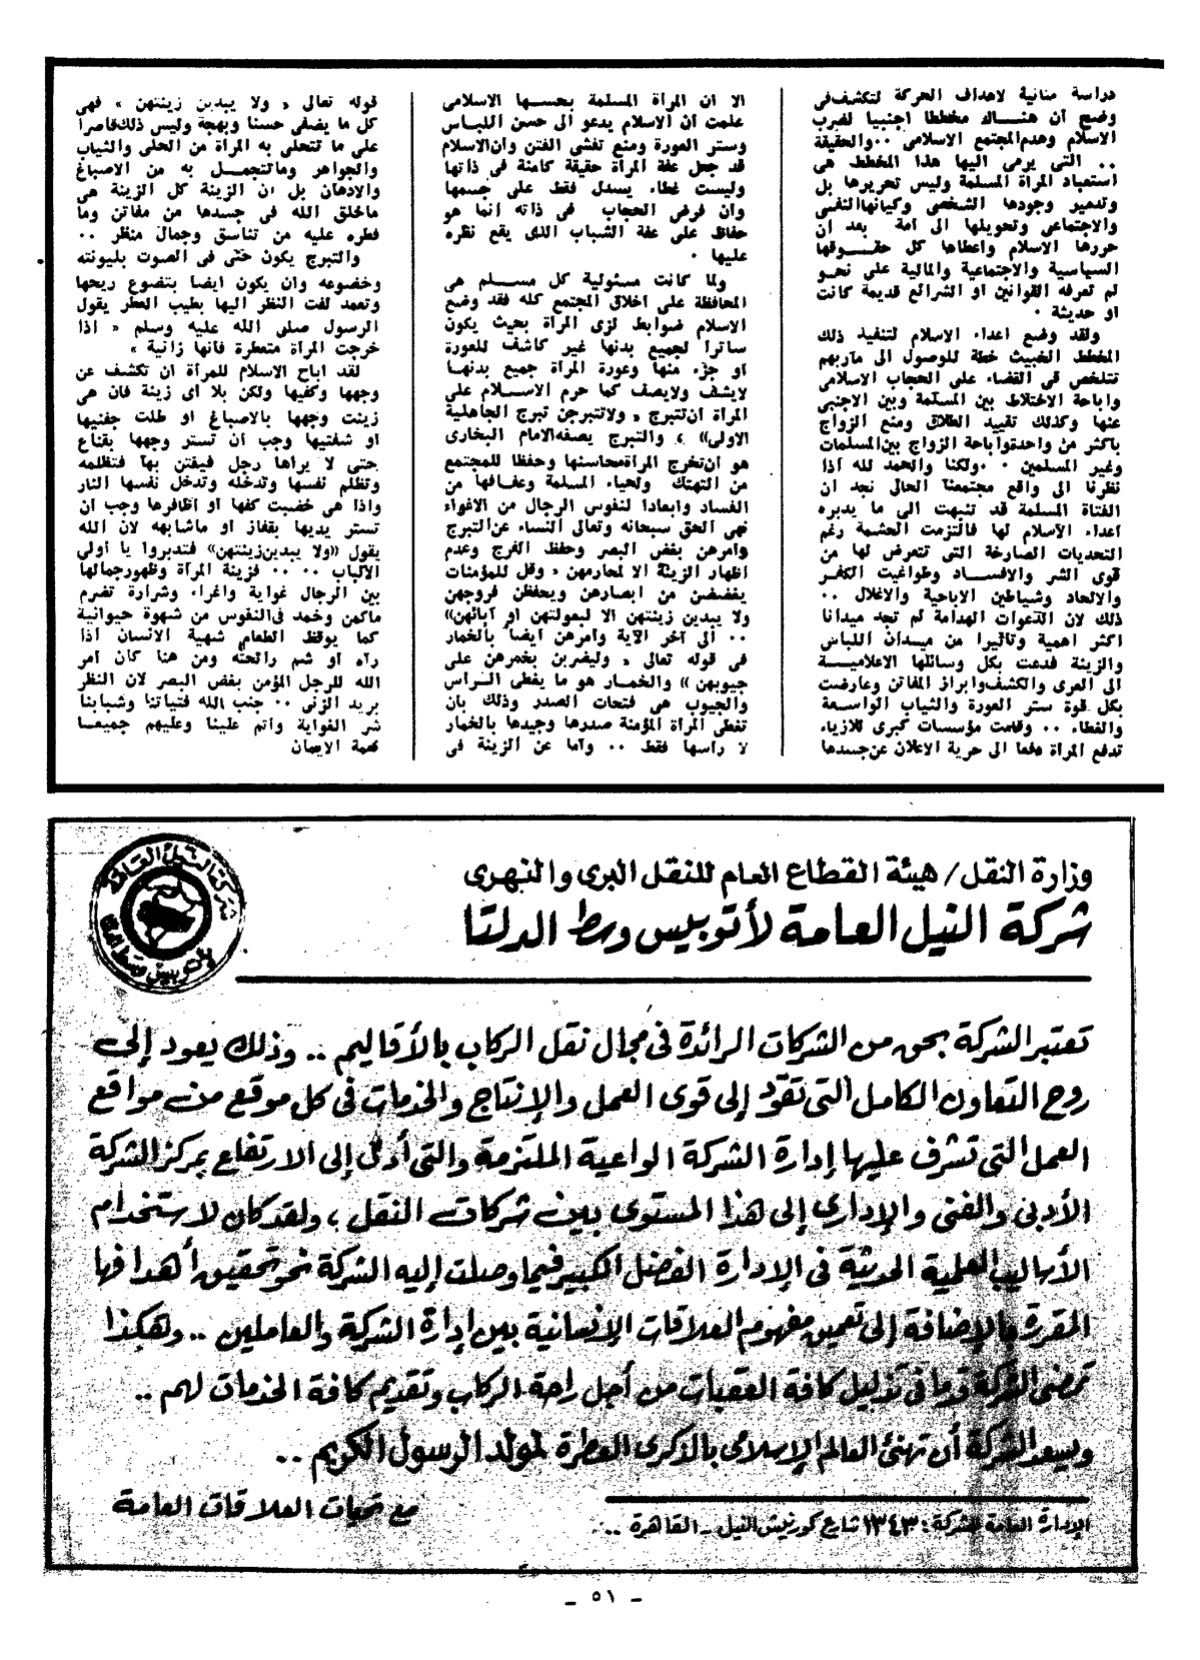 دراسة متأنية لاهداف الحركة لتكشف فى
وضوح أن هنـــاك مخططا اجنبيا لضرب
الاسلام وهدم المجتمع الاسلامى ٠٠ والحقيقة
٠٠ التى يرمى اليها هذا المخطط هى
استعباد المرأة المسلمة وليس تحريرها بل
وتدمير وجودها الشخصى وكيانها النفسى
والاجتماعى وتحويلها الى أمة بعد أن
حررها الاسلام وأعطاها كل حقـــوقها
السياسية والاجتماعية والمالية على نحـو
لم تعرفه القوانين أو الشرائع قديمة كانت
أو حديثة ٠
ولقد وضع أعداء الاسلام لتنفيذ ذلك
المخطط الخبيث خطة للوصول الى مآربهم
تتلخص فى القضاء على الحجاب الاسلامى
واباحة الاختلاط بين المسلمة وبين الاجنبى
عنها وكذلك تقييد الطلاق ومنع الزواج
باكثر من واحدة واباحة الزواج بين المسلمات
وغير المسلمين ٠ ٠ ولكنا والحمد لله اذا
نظرنا الى واقع مجتمعنا الحالى نجد أن
الفتاة المسلمة قد تنبهت الى ما يدبره
أعداء الاسلام لها فالتزمت الحشمة رغم
التحديات الصارخة التى تتعرض لها من
قوى الشر والافســاد وطواغيت الكفـر
والالحاد وشياطين الاباحية والاغلال ٠٠
ذلك لان الدعوات الهدامة لم تجد ميدانا
أكثر أهمية وتأثيرا من ميـدان اللباس
والزينة فدعت بكل وسائلها الاعلاميـــة
الى العرى والكشف وابراز المفاتن وعارضت
بكل قوة ستر العورة والثياب الواسـعة
والغطاء ٠٠ وقامت مؤسسات كبرى للازياء
تدفع المرأة دفعا الى حرية الاعلان عن جسدها
الا أن المرأة المسلمة بحسـها الاسلامى
علمت أن الاسلام يدعو الى حسن اللبـاس
وستر العورة ومنع تفشى الفتن وان الاسلام
قد جعل عفة المرأة حقيقة كامنة فى ذاتها
وليست غطاء يسدل فقط على جسمها
وان فرض الحجاب فى ذاته انما هو
حفاظ على عفة الشباب الذى يقع نظره
عليها ٠
ولما كانت مسئولية كل مســلم هى
المحافظة على أخلاق المجتمع كله فقد وضع
الاسلام ضوابط لزى المرأة بحيث يكون
ساترا لجميع بدنها غير كاشف للعورة
أو جزء منها وعورة المرأة جميع بدنهـا
لايشف ولايصف كما حرم الاســلام على
المرأة ان تتبرج « ولاتتبرجن تبرج الجاهلية
الاولى» ، والتبرج يصفه الامام البخارى
هو ان تخرج المرأة محاسنها وحفظا للمجتمع
من التهتك ولحياء المسلمة وعفـافها من
الفساد وابعادا لنفوس الرجال من الاغواء
نهى الحق سبحانه وتعالى النساء عن التبرج
وأمرهن بغض البصر وحفظ الفرج وعدم
اظهار الزينة الا لمحارمهن « وقل للمؤمنات
يغضضن من أبصارهن ويحفظن فروجهن
ولا يبدين زينتهن الا لبعولتهن أو آبائهن»
٠٠ الى آخر الآية وأمرهن ايضا بالخمار
فى قوله تعالى « وليضربن بخمرهن على
جيوبهن » والخمـار هو ما يغطى الـرأس
والجيوب هى فتحات الصدر وذلك بأن
تغطى المرأة المؤمنة صدرها وجيدها بالخمار
لا رأسها فقط ٠٠ وأما عن الزينة فى
قوله تعالى « ولا يبدين زينتهن » فهى
كل ما يضفى حسنا وبهجة وليس ذلك قاصرا
على ما تتحلى به المرأة من الحلى والثياب
والجواهر وما تتجمـــل به من الاصباغ
والادهان بل ان الزينة كل الزينة هى
ما خلق الله فى جسدها من مفاتن وما
فطره عليه من تناسق وجمال منظر ٠٠
والتبرج يكون حتى فى الصوت بليونته
وخضوعه وأن يكون أيضا بتضوع ريحها
وتعمد لفت النظر اليها بطيب العطر يقول
الرسول صلى الله عليه وسلم « اذا
خرجت المرأة متعطرة فانها زانية »
لقد أباح الاسلام للمرأة أن تكشف عن
وجهها وكفيها ولكن بلا أى زينة فان هى
زينت وجهها بالاصباغ أو طلت جفنيها
أو شفتيها وجب أن تستر وجهها بقناع
حتى لا يراها رجل فيفتن بها فتظلمه
وتظلم نفسها وتدخله وتدخل نفسها النار
واذا هى خضبت كفها أو أظافرها وجب أن
تستر يديها بقفاز أو ماشابهه لان الله
يقول «ولا يبدين زينتهن» فتدبروا يا أولى
الألباب ٠٠ ٠٠ فزينة المرأة وظهور جمالها
بين الرجال غواية واغراء وشرارة تضرم
ماكمن وخمد فى النفوس من شهوة حيوانية
كما يوقظ الطعام شهية الانسان اذا
رآه أو شم رائحته ومن هنا كان أمر
الله للرجل المؤمن بغض البصر لان النظر
بريد الزنى ٠٠ جنب الله فتياتنا وشبابنا
شر الغواية وأتم علينا وعليهم جميعــا
نعمة الايمان
شركة النيل العامة
لأتوبيس وسط الدلتا
وزارة النقل / هيئة القطاع العام للنقل البرى والنهرى
شركة النيل العامة لأتوبيس وسط الدلتا
تعتبر الشركة بحق من الشركات الرائدة فى مجال نقل الركاب بالأقاليم .. وذلك يعود إلى
روح التعاون الكامل التى تقود إلى قوى العمل والإنتاج والخدمات فى كل موقع من مواقع
العمل التى تشرف عليها إدارة الشركة الواعية الملتزمة والتى أدت إلى الارتفاع بمركز الشركة
الأدبى والفنى والإدارى إلى هذا المستوى بين شركات النقل ، ولقد كان لاستخدام
الأساليب العلمية الحديثة فى الإدارة الفضل الكبير فيما وصلت إليه الشركة نحو تحقيق أهدافها
المقررة بالإضافة إلى تعميق مفهوم العلاقات الإنسانية بين إدارة الشركة والعاملين .. وهكذا
تمضى الشركة قدما فى تذليل كافة العقبات من أجل راحة الركاب وتقديم كافة الخدمات لهم ..
ويسعد الشركة أن تهنئ العالم الإسلامى بالذكرى العطرة لمولد الرسول الكريم ..
مع تحيات العلاقات العامة
الإدارة العامة للشركة : ١٣٤٣ شارع كورنيش النيل - القاهرة ..
- ٥١ -